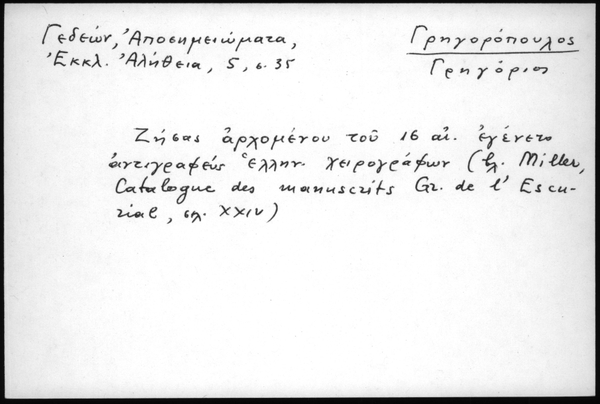 Γεδεών, Ἀποσημειώματα,
Ἐκκλ. Ἀλήθεια, 5, σ. 35
Γρηγορόπουλος
Γρηγόριος
Ζήσας ἀρχομένου τοῦ 16 αἰ. ἐγένετο
ἀντιγραφεύς ἑλλην. χειρογράφων (βλ. Miller,
Catalogue des manuscrits Gr. de l' Escu-
rial, σελ. XXIV)